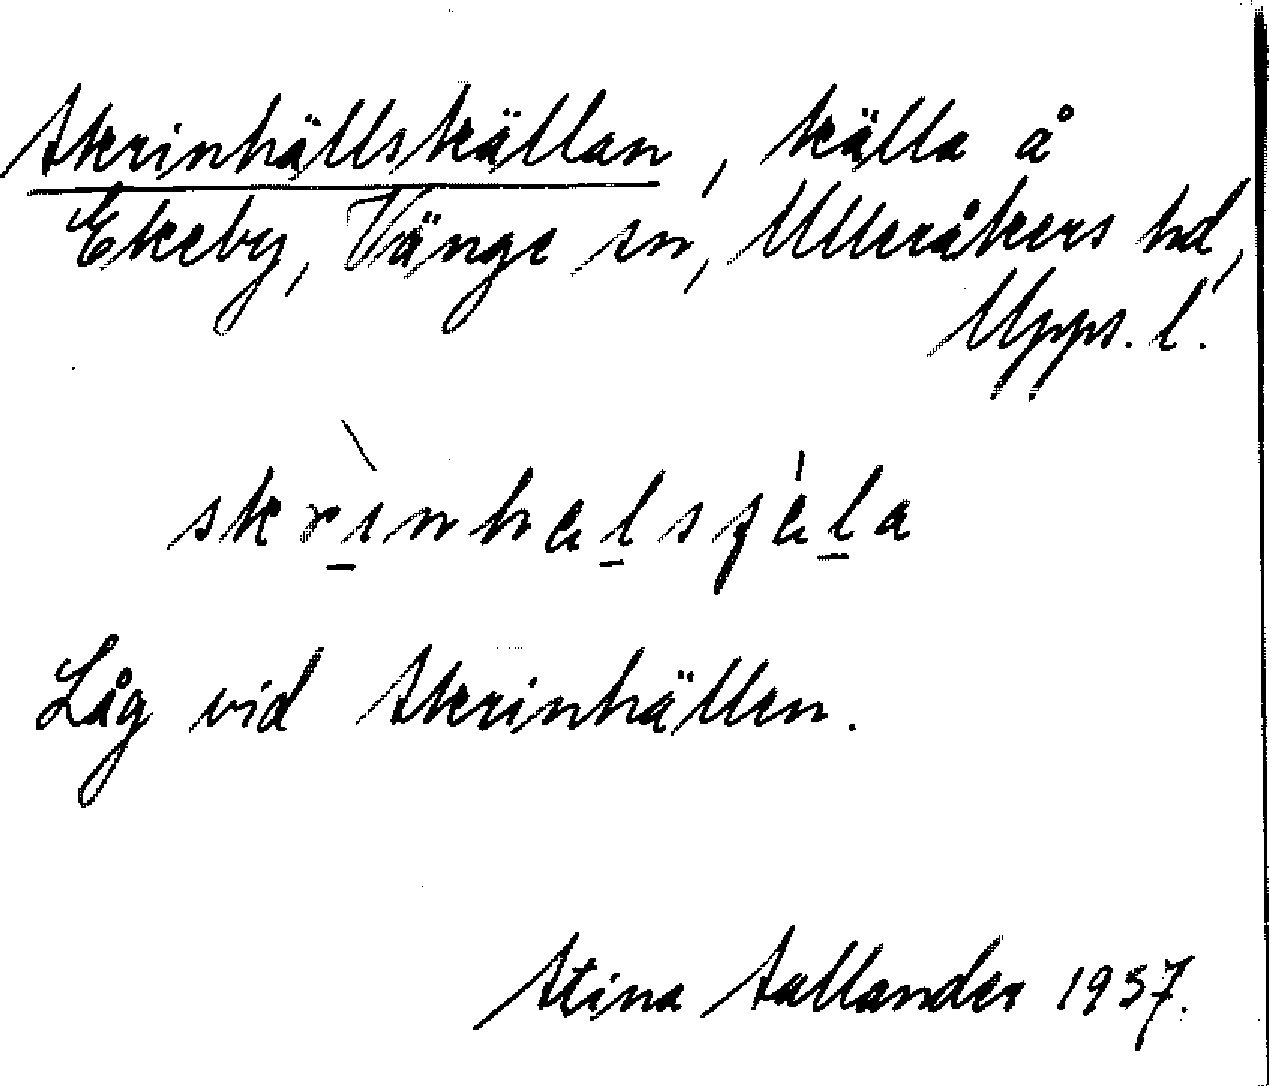 Skrinhällskällan, källa å
Ekeby, Vänge sn, Ulleråkers hd,
Upps. l.
Låg vid Skrinhällen.
Stina Sallander 1937.